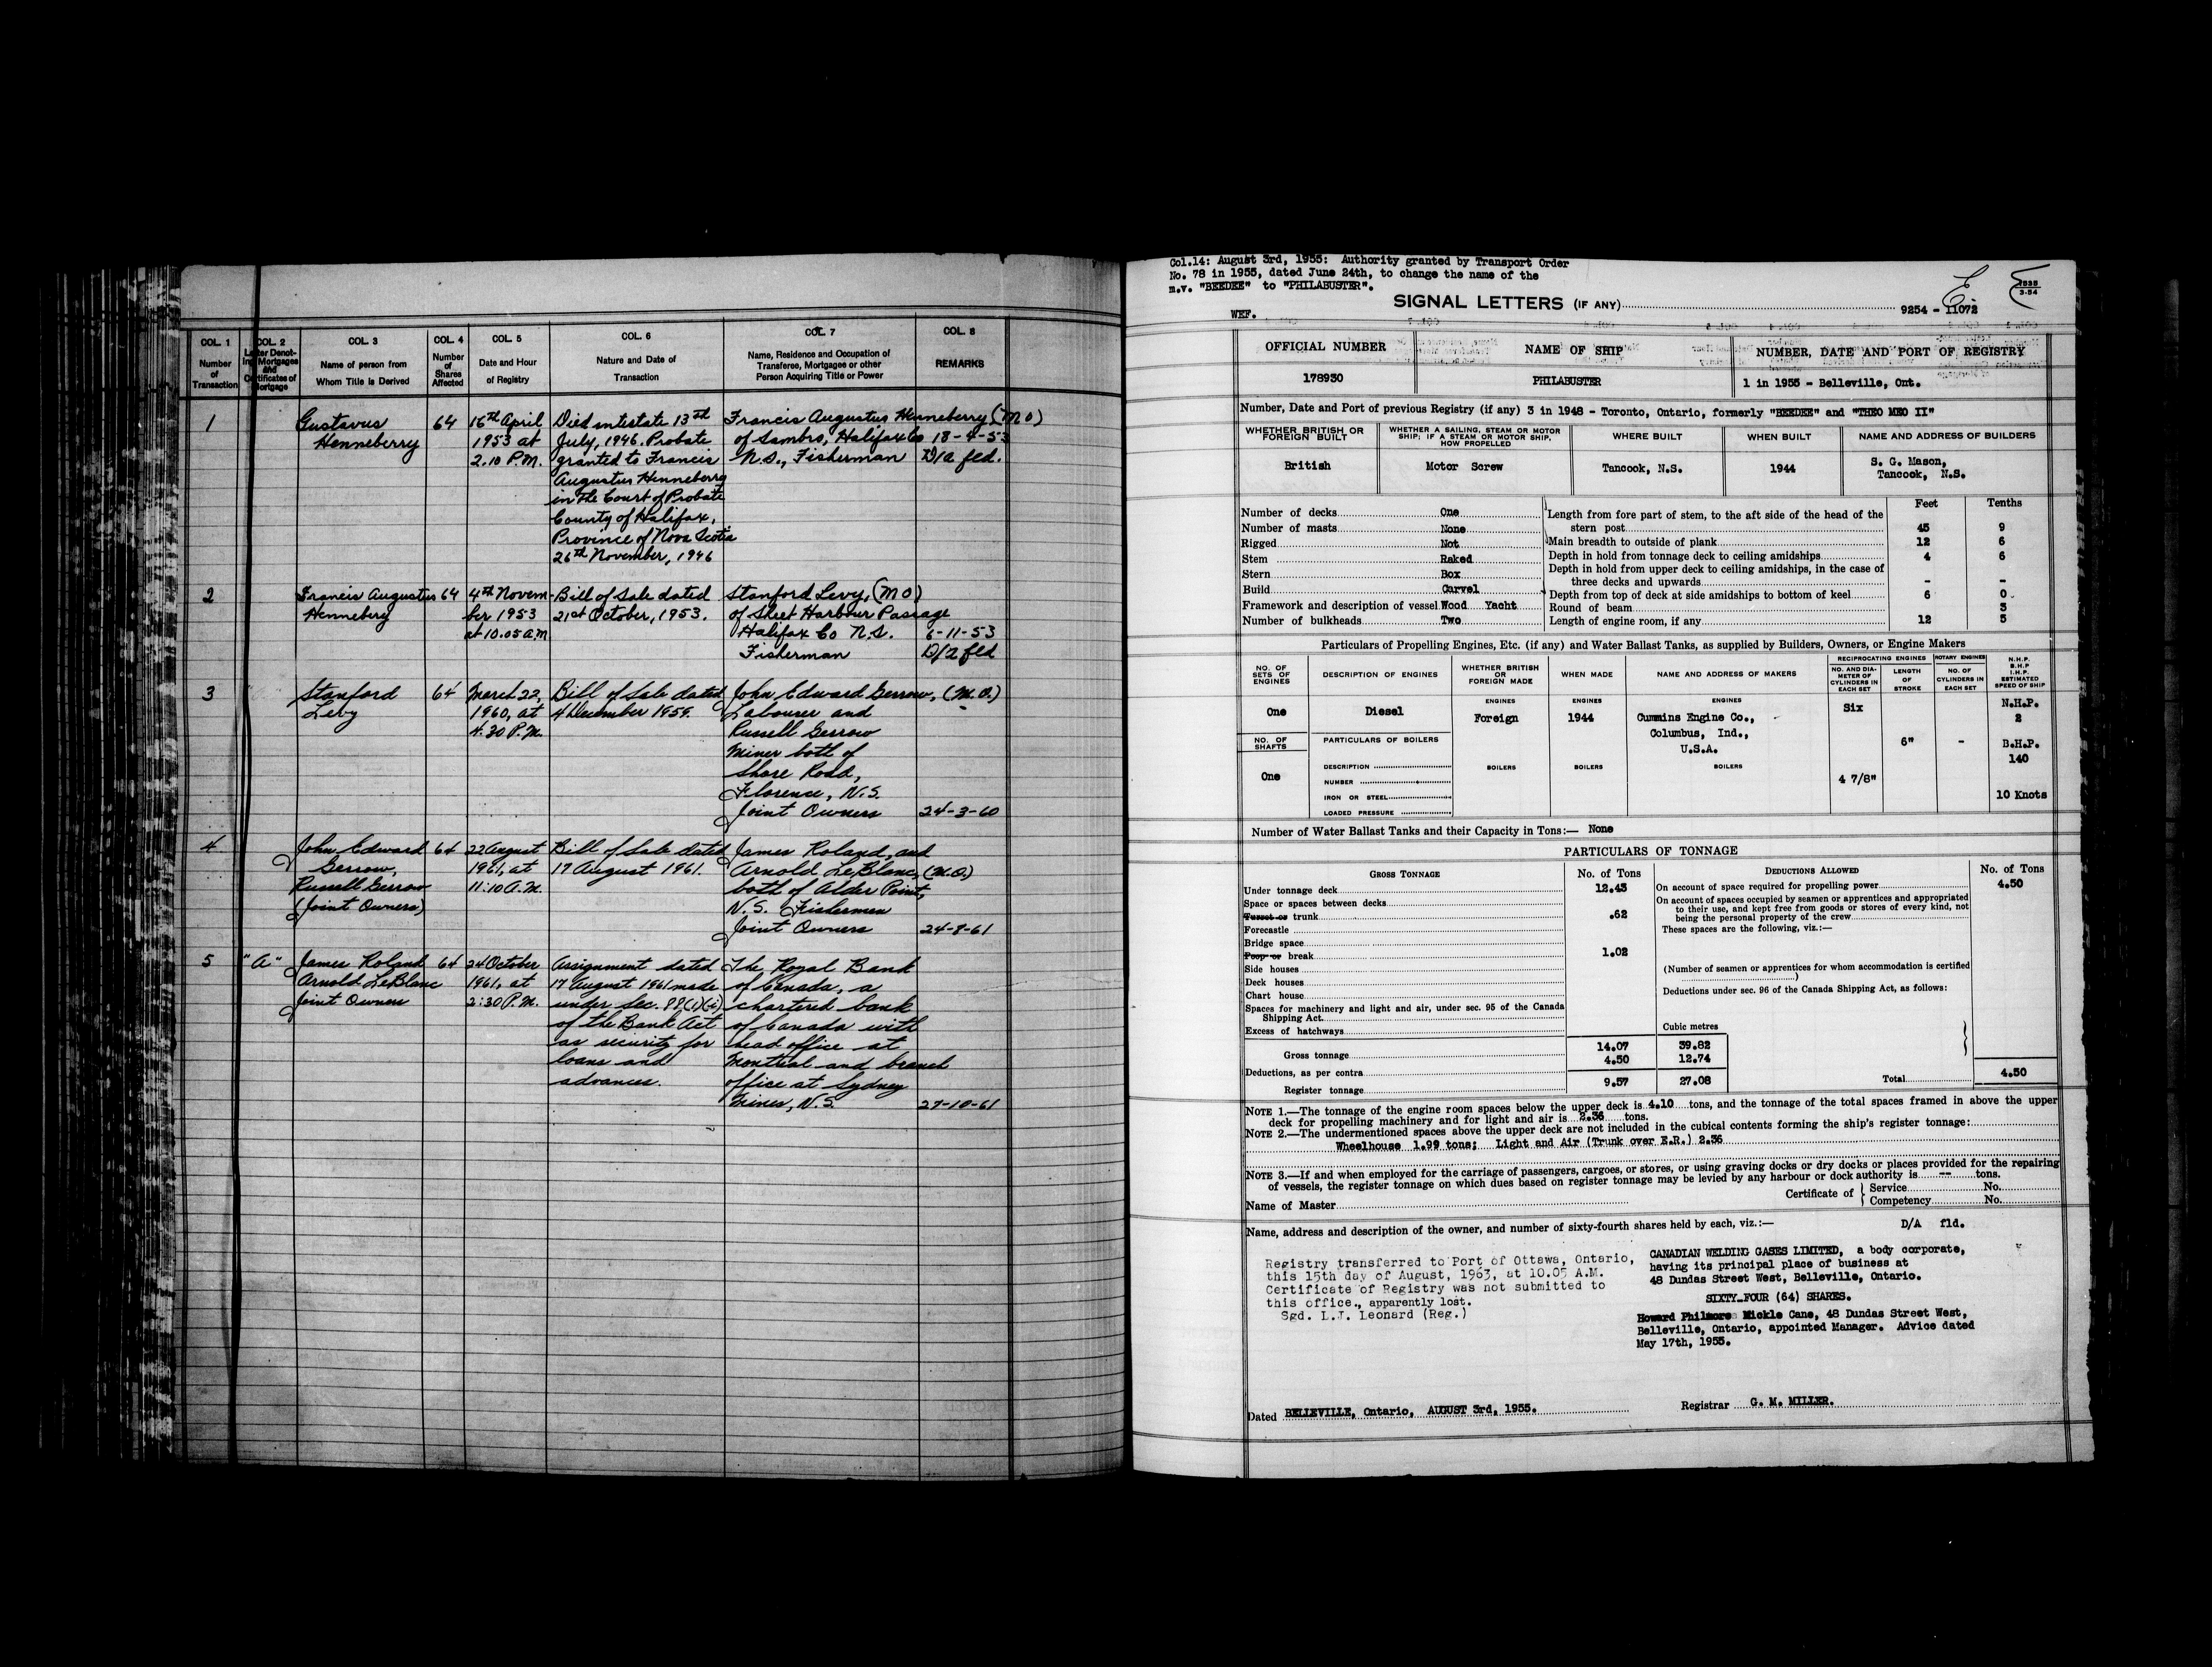 COL. 1
Number
of
Transaction
COL. 2
Letter Denot-
ing Mortgages
and
Certificates of
Mortgage
COL. 3
Name of person from
Whom Title is Derived
COL. 4
Number
of
Shares
Affected
COL. 5
Date and Hour
of Registry
COL. 6
Nature and Date of
Transaction
COL. 7
Name, Residence and Occupation of
Transferee, Mortgagee or other
Person Acquiring Title or Power
COL. 8
REMARKS
1 Gustavus 64 16th April Died intestate 13th Francis Augustus Henneberry (M O)
Henneberry 1953 at July, 1946. Probate of Sambro, Halifax Co 18-4-53
2.10 P.M. granted to Francis N.S., Fisherman D/a fld.
Augustus Henneberry
in the Court of Probate
County of Halifax,
Province of Nova Scotia
26th November, 1946
2 Francis Augustus 64 4th Novem- Bill of Sale dated Stanford Levy, (M O)
Henneberry ber 1953 21st October, 1953. of Sheet Harbour Passage
at 10.05 A.M Halifax Co N.S. 6-11-53
Fisherman D/2 fld
3 Stanford 64 March 22, Bill of Sale dated John Edward Gerrow, (M.O.)
Levy 1960, at 4 December 1959. Labourer and
4:30 P.M. Russell Gerrow
Miner both of
Shore Road,
Florence, N.S.
Joint Owners 24-3-60
4 John Edward 64 22 August Bill of Sale dated James Roland, and
Gerrow, 1961, at 17 August 1961. Arnold LeBlanc, (M.O.)
Russell Gerrow 11:10 A.M. both of Alder Point,
(Joint Owners) N.S. Fishermen
Joint Owners 24-8-61
5 "A" James Roland 64 24 October Assignment dated The Royal Bank
Arnold LeBlanc 1961, at 17 August 1961 made of Canada, a
Joint Owners 2:30 P.M. under Sec. 88(1)(i) chartered bank
of the Bank Act of Canada with
as security for head office at
loans and Montreal and branch
advances. office at Sydney
Mines, N.S. 27-10-61
Col.14: August 3rd, 1955: Authority granted by Transport Order
No. 78 in 1955, dated June 24th, to change the name of the
m.v. "BEEDEE" to "PHILABUSTER".
SIGNAL LETTERS (IF ANY)
WEF.
9254 - 11072
3-54
OFFICIAL NUMBER NAME OF SHIP NUMBER, DATE AND PORT OF REGISTRY
178930 PHILABUSTER 1 in 1955 - Belleville, Ont.
Number, Date and Port of previous Registry (if any) 3 in 1948 - Toronto, Ontario, formerly "BEEDEE" and "THEO MEO II"
WHETHER BRITISH OR
FOREIGN BUILT
WHETHER A SAILING, STEAM OR MOTOR
SHIP; IF A STEAM OR MOTOR SHIP,
HOW PROPELLED
WHERE BUILT
WHEN BUILT
NAME AND ADDRESS OF BUILDERS
British Motor Screw Tancook, N.S. 1944 S. G. Mason,
Tancook, N.S.
Feet Tenths
Number of decks One
Number of masts None
Rigged Not
Stem Raked
Stern Box
Build Carvel
Framework and description of vessel Wood Yacht
Number of bulkheads Two
Length from fore part of stem, to the aft side of the head of the
stern post 45 9
Main breadth to outside of plank 12 6
Depth in hold from tonnage deck to ceiling amidships 4 6
Depth in hold from upper deck to ceiling amidships, in the case of
three decks and upwards - -
Depth from top of deck at side amidships to bottom of keel 6 0
Round of beam 3
Length of engine room, if any 12 5
Particulars of Propelling Engines, Etc. (if any) and Water Ballast Tanks, as supplied by Builders, Owners, or Engine Makers
NO. OF
SETS OF
ENGINES
DESCRIPTION OF ENGINES
WHETHER BRITISH
OR
FOREIGN MADE
WHEN MADE
NAME AND ADDRESS OF MAKERS
RECIPROCATING ENGINES
NO. AND DIA-
METER OF
CYLINDERS IN
EACH SET
LENGTH
OF
STROKE
ROTARY ENGINES
NO. OF
CYLINDERS IN
EACH SET
N.H.P.
B.H.P
I.H.P.
ESTIMATED
SPEED OF SHIP
ENGINES ENGINES ENGINES
One Diesel Foreign 1944 Cummins Engine Co.,
Columbus, Ind.,
U.S.A.
Six
6"
-
N.H.P.
2
B.H.P.
140
NO. OF
SHAFTS
One
PARTICULARS OF BOILERS
DESCRIPTION
NUMBER
IRON OR STEEL
LOADED PRESSURE
BOILERS BOILERS BOILERS
4 7/8"
10 Knots
Number of Water Ballast Tanks and their Capacity in Tons:— None
PARTICULARS OF TONNAGE
GROSS TONNAGE No. of Tons
Under tonnage deck 12.43
Space or spaces between decks
Turret or trunk .62
Forecastle
Bridge space
Poop or break 1.02
Side houses
Deck houses
Chart house
Spaces for machinery and light and air, under sec. 95 of the Canada
Shipping Act
Excess of hatchways
Cubic metres
Gross tonnage 14.07 39.82
Deductions, as per contra 4.50 12.74
Register tonnage 9.57 27.08
DEDUCTIONS ALLOWED No. of Tons
On account of space required for propelling power 4.50
On account of spaces occupied by seamen or apprentices and appropriated
to their use, and kept free from goods or stores of every kind, not
being the personal property of the crew
These spaces are the following, viz.:—
(Number of seamen or apprentices for whom accommodation is certified
)
Deductions under sec. 96 of the Canada Shipping Act, as follows:
Total 4.50
NOTE 1.—The tonnage of the engine room spaces below the upper deck is 4.10 tons, and the tonnage of the total spaces framed in above the upper
deck for propelling machinery and for light and air is 2.36 tons.
NOTE 2.—The undermentioned spaces above the upper deck are not included in the cubical contents forming the ship's register tonnage:
Wheelhouse 1.99 tons; Light and Air (Trunk over E.R.) 2.36
NOTE 3.—If and when employed for the carriage of passengers, cargoes, or stores, or using graving docks or dry docks or places provided for the repairing
of vessels, the register tonnage on which dues based on register tonnage may be levied by any harbour or dock authority is -- tons.
Name of Master
Certificate of { Service No.
Competency No.
Name, address and description of the owner, and number of sixty-fourth shares held by each, viz.:—
D/A fld.
Registry transferred to Port of Ottawa, Ontario,
this 15th day of August, 1963, at 10.05 A.M.
Certificate of Registry was not submitted to
this office., apparently lost.
Sgd. L.J. Leonard (Reg.)
CANADIAN WELDING GASES LIMITED, a body corporate,
having its principal place of business at
48 Dundas Street West, Belleville, Ontario.
SIXTY-FOUR (64) SHARES.
Howard Philmore Mickle Cane, 48 Dundas Street West,
Belleville, Ontario, appointed Manager. Advice dated
May 17th, 1955.
Dated BELLEVILLE, Ontario, AUGUST 3rd, 1955.
Registrar G. M. MILLER.